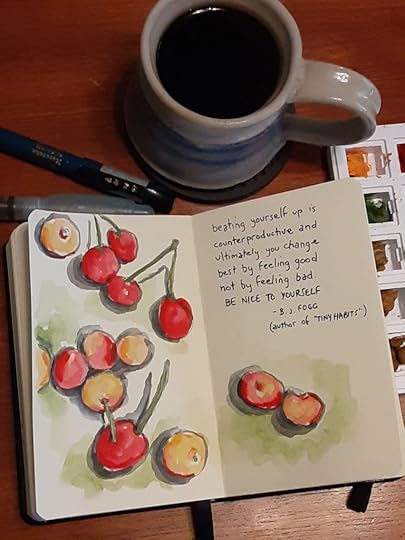 beating yourself up is
counterproductive and
ultimately you change
best by feeling good
not by feeling bad.
BE NICE TO YOURSELF
- B.J. FOGG
(author of "TINY HABITS")